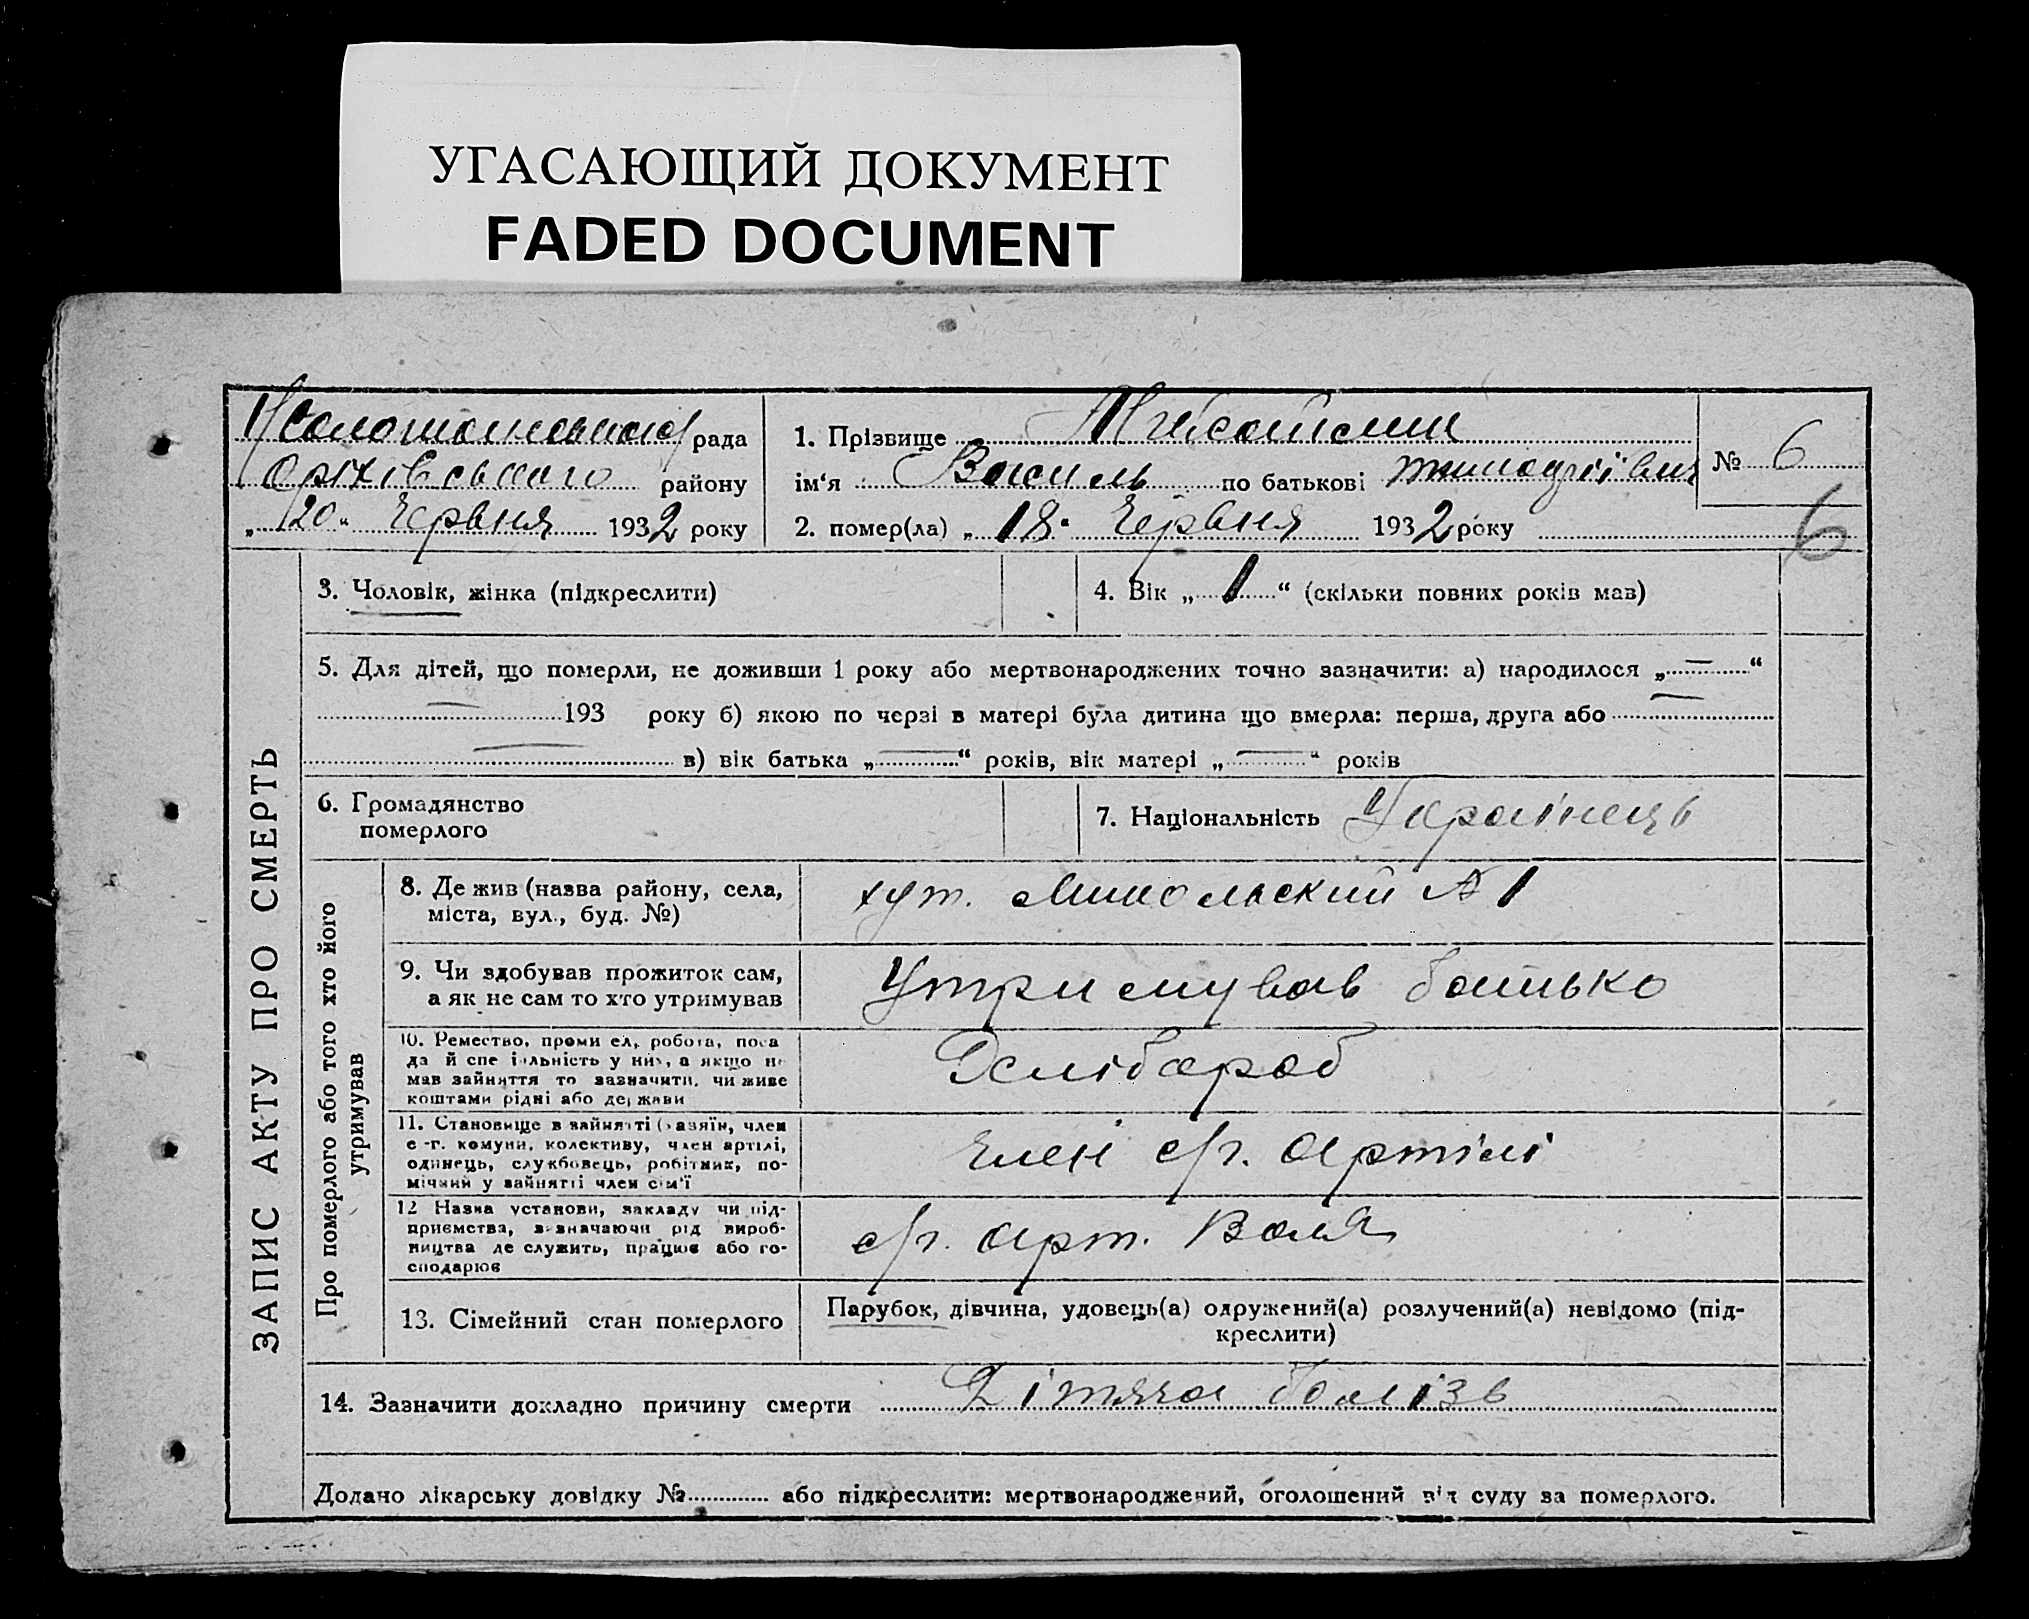 УГАСАЮЩИЙ ДОКУМЕНТ
FADED DOCUMENT
рада
Оріхівського району
„20“ Червня 1932 року
1. Прізвище
ім‘я Василь по батькові
2. помер(ла) „18“ Червня 1932 року
№ 6
6
ЗАПИС АКТУ ПРО СМЕРТЬ
3. Чоловік, жінка (підкреслити)
4. Вік „1“ (скільки повних років мав)
5. Для дітей, що померли, не доживши 1 року або мертвонароджених точно зазначити: а) народилося „—“
— 193 року б) якою по черзі в матері була дитина що вмерла: перша, друга або —
— в) вік батька „—“ років, вік матері „—“ років
6. Громадянство
померлого
7. Національність Українець
Про померлого або того хто його
утримував
8. Де жив (назва району, села,
міста, вул., буд. №)
хут. Микольский № 1
9. Чи здобував прожиток сам,
а як не сам то хто утримував
Утримував батько
10. Ремество, проми ел, робота, поса
да й спе іальність у них, а якщо не
мав зайняття то зазначити, чи живе
коштами рідні або держави
Хлібороб
11. Становище в зайнятті (хазяїн, член
с.-г. комуни, колективу, член артілі,
одинець, службовець, робітник, по-
мічний у зайнятті член сім'ї
Член с/г. артілі
12 Назва установи, закладу чи під-
приємства, зазначаючи рід вироб-
ництва де служить, працює або го-
сподарює
с/г. арт. Воля
13. Сімейний стан померлого
Парубок, дівчина, удовець(а) одружений(а) розлучений(а) невідомо (під-
креслити)
14. Зазначити докладно причину смерти Дітяча болізь
Додано лікарську довідку № або підкреслити: мертвонароджений, оголошений від суду за померлого.